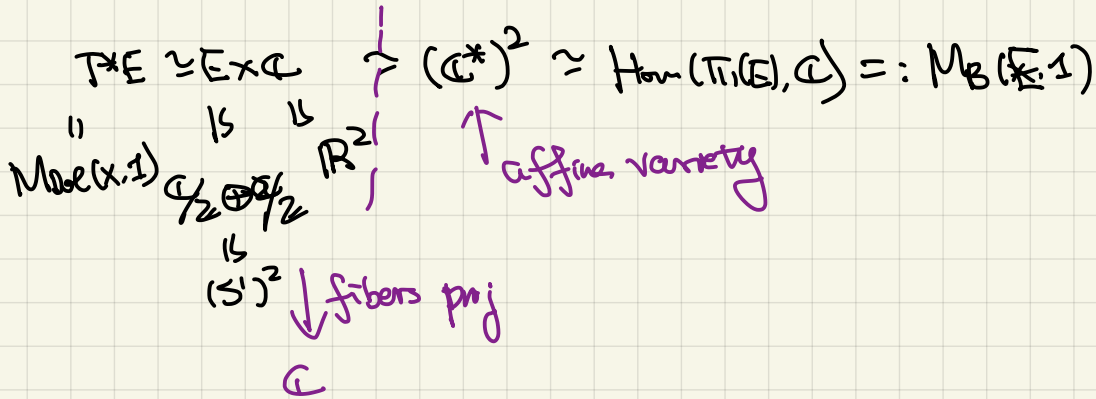 T*E ≃ E×ℂ ≃ (ℂ*)² ≃ Hom(π₁(E), ℂ) =: M_B(E,1)
M_Dol(X,1) ℂ/ℤ ⊕ ℂ/ℤ ℝ² ↑ affine variety
(S¹)² ↓ fibers proj
ℂ